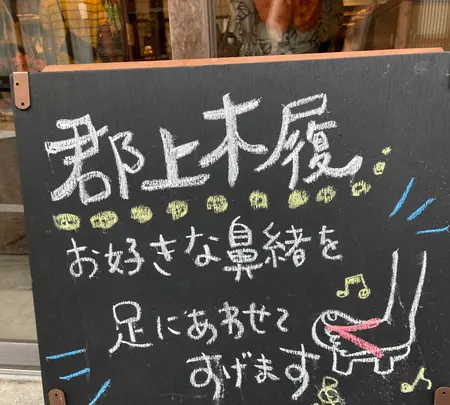 郡上木履
お好きな鼻緒を
足にあわせて
すげます